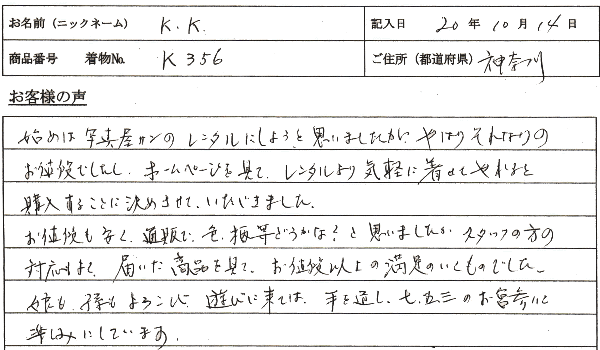 お名前（ニックネーム） K.K. 記入日 20年10月14日
商品番号 着物No. K356 ご住所（都道府県） 神奈川
お客様の声
始めは写真屋サンのレンタルにしようと思いましたが、やはりそれなりの
お値段でしたし、ホームページを見て、レンタルより気軽に着せてやれると
購入することに決めさせて、いただきました。
お値段も安く、通販で、色、柄等どうかな？と思いましたが、スタッフの方の
対応もよく、届いた商品を見て、お値段以上の満足のいくものでした。
娘も、孫もよろこび、遊びに来ては、手を通し、七五三のお宮参りを
楽しみにしています。